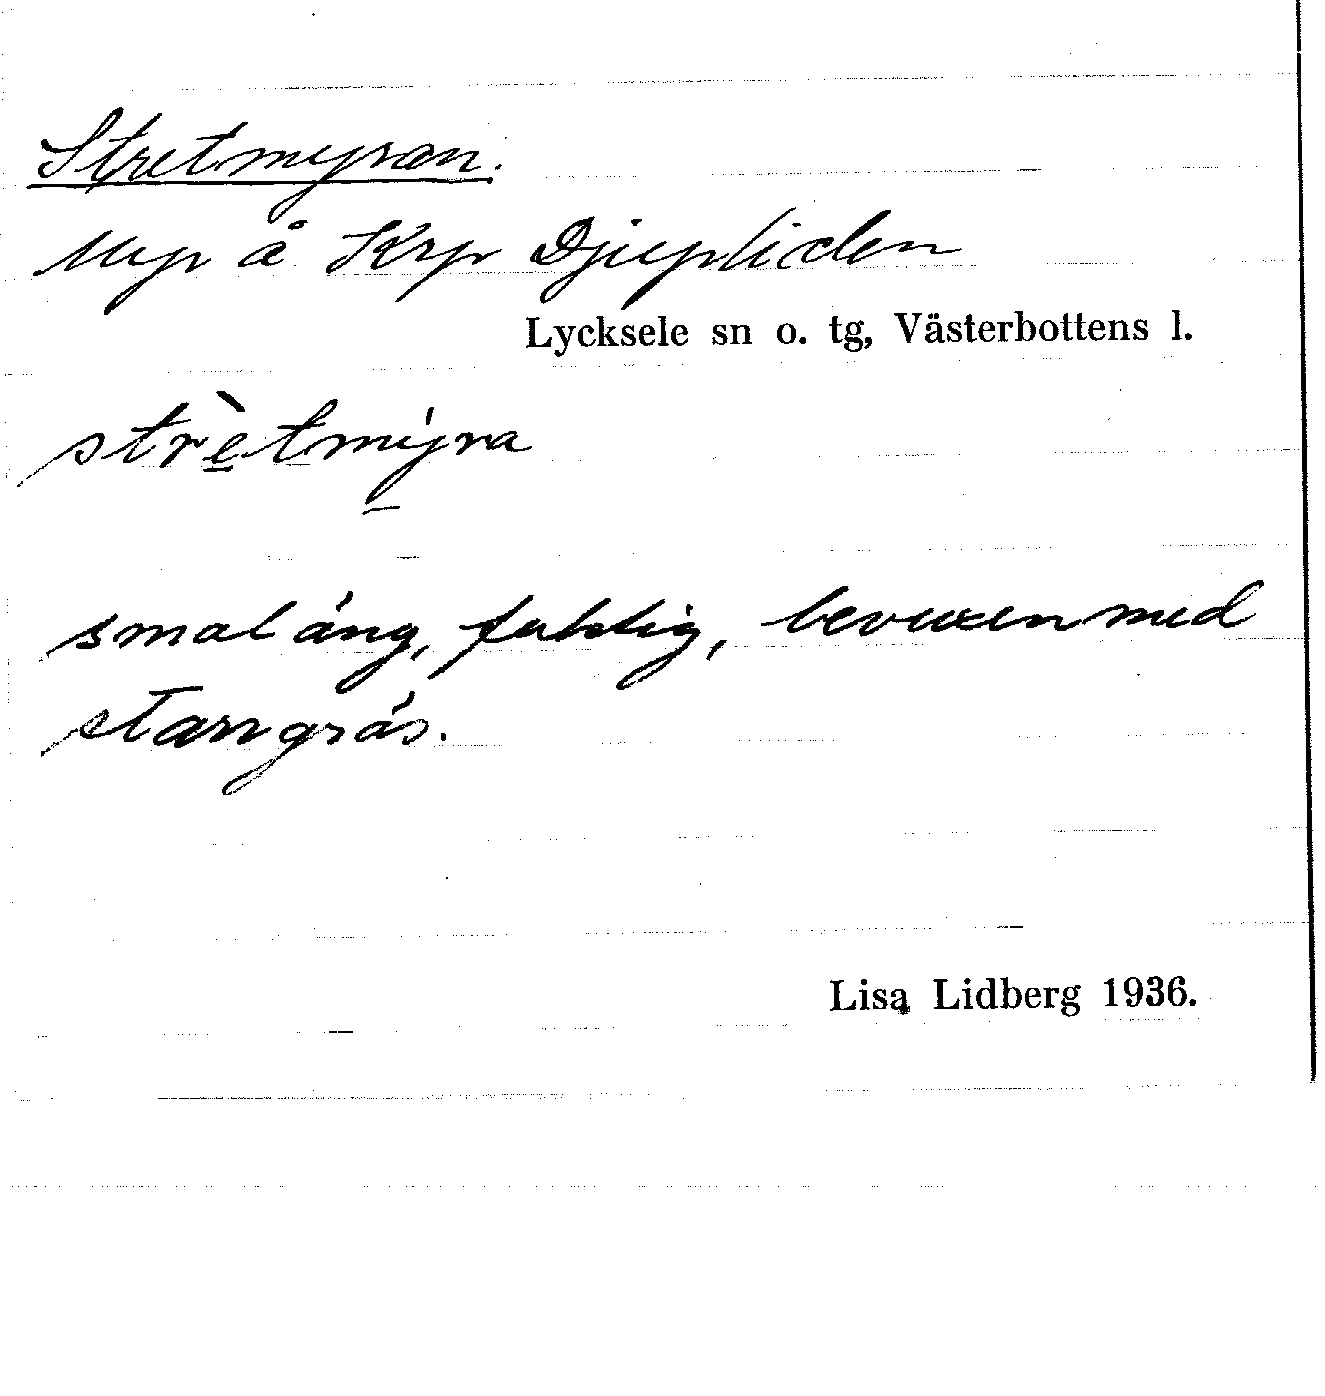 Stretmyran.
Myr å Krp Djupliden
Lycksele sn o. tg, Västerbottens l.
strètmýra
smal äng, fuktig, bevuxen med
starrgräs.
Lisa Lidberg 1936.